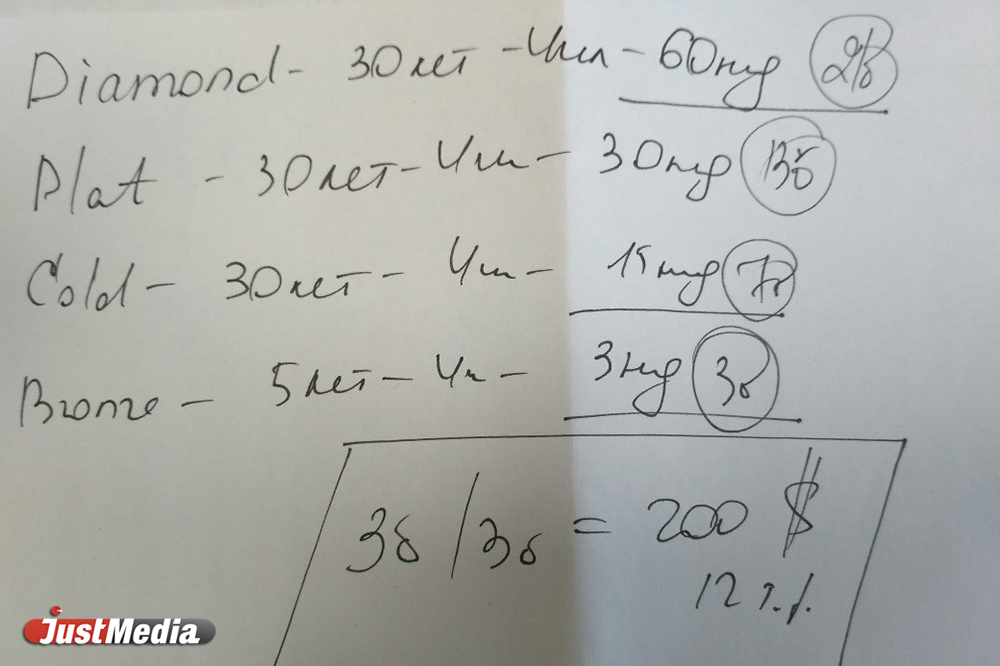 Diamond - 30 лет - 4чл - 60 нед 2б
Plat - 30 лет - 4чл - 30 нед 13б
Gold - 30 лет - 4чл - 15 нед 7б
Bronze - 5 лет - 4ч - 3 нед 3б
3б / 3б = 200 $
12 т.р.
JUSTMEDIA